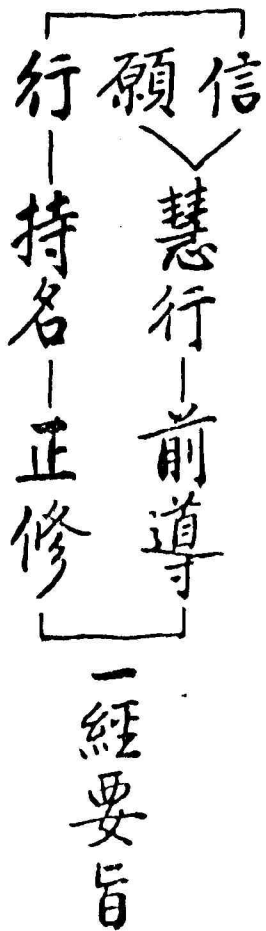 信
願
慧行
前導
行
持名
正修
一經要旨